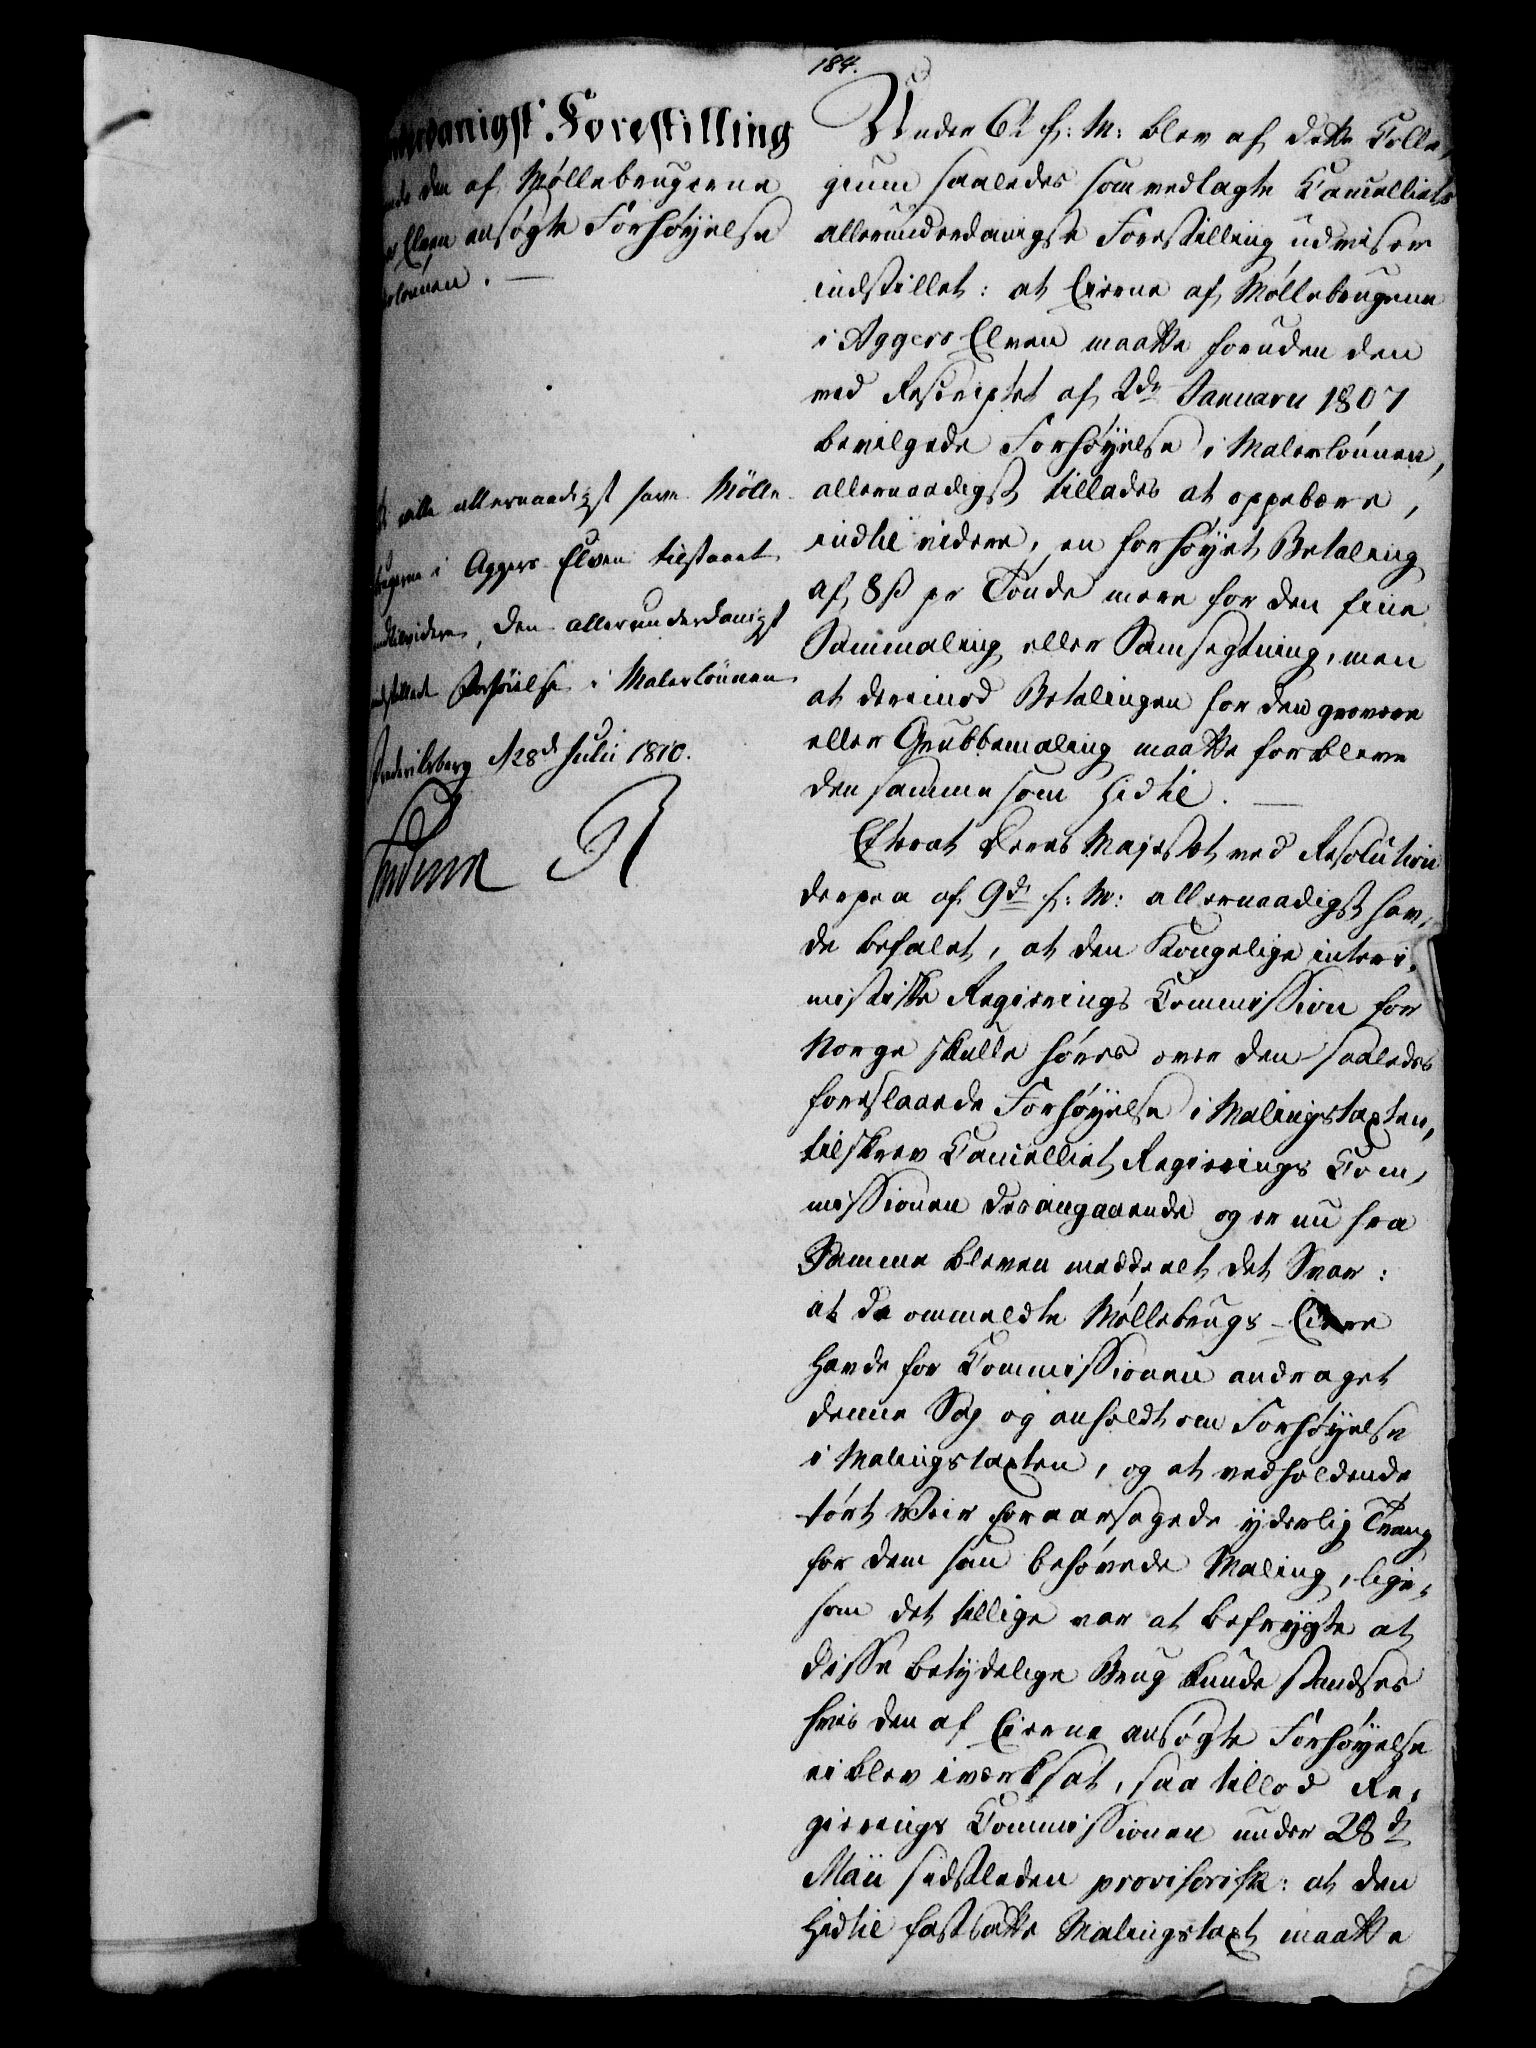 184.
Forestilling
den af Möllebrugerne
Elven ansögte Forhöyelse
lönnen. —
ville allernaadigst have Mölle
brugerne i Aggers Elven tilstaaet
indtilvidere, den allerunderdanigst
indstillede Forhöielse i Malerlönnen
Frederiksberg d 28d Julii 1810.
Frederik R
Under 6te f: M: blev af dette Colle,
gium saaledes som vedlagte Cancelliets
allerunderdanigste Forestilling udviser
indstillet: at Eierne af Möllebrugene
i Aggers Elven maatte foruden den
ved Rescriptet af 2de Januarii 1807
bevilgede Forhöyelse i Malerlönnen,
allernaadigst tillades at oppebære,
indtil videre, en forhöyet Betaling
af 8 ß pr Tönde mere for den fine
Sammaling eller Samsegtning, men
at derimod Betalingen for den grovere
eller Grubbemaling maatte forblive
den samme som hidtil. —
Efterat Deres Majestet ved Resolution
derpaa af 9de f: M: allernaadigst hav,
de befalet, at den Kongelige interi,
mistiske Regierings Commission for
Norge skulle höres over den saaledes
foreslaaede Forhöyelse i Malingstaxten,
tilskrev Cancelliet Regierings Com,
missionen desangaaende og er nu fra
Samme bleven meddeelt det Svar:
at de ommeldte Möllebrugs-Eiere
havde for Commissionen andraget
denne Sag og anholdt om Forhöyelse
i Malingstaxten, og at vedholdende
tört Veir foraarsagede yderlig Trang
for dem som behövede Maling, lige,
som det tillige var at befrygte at
disse betydelige Brug kunde standses
hvis den af Eierne ansögte Forhöyelse
ei blev iværksat, saa tillod Re,
gierings Commissionen under 28de
Maii sidstleden provisorisk: at den
hidtil fastsatte Malingstaxt maatte